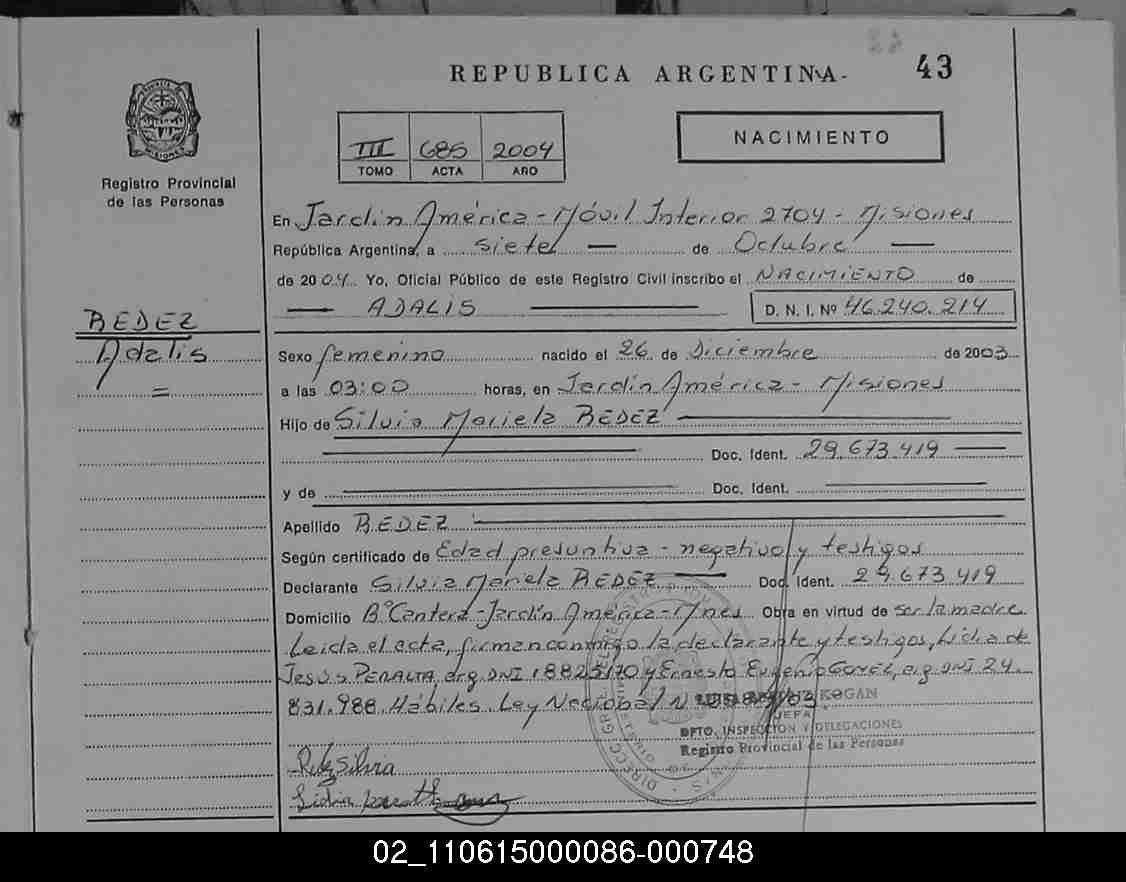 43
REPUBLICA ARGENTINA
III 685 2004
TOMO ACTA AÑO
NACIMIENTO
MISIONES
Registro Provincial
de las Personas
En Jardín América - Móvil Interior 2704 - Misiones
República Argentina, a siete — de Octubre —
de 2004 Yo, Oficial Público de este Registro Civil inscribo el NACIMIENTO de
— ADALIS —
D. N. I. Nº 46.240.214
BEDEZ
Adalis
=
Sexo femenino nacido el 26 de Diciembre de 2003
a las 03:00 horas, en Jardín América - Misiones
Hijo de Silvia Mariela BEDEZ —
Doc. Ident. 29.673.419 —
y de — Doc. Ident. —
Apellido BEDEZ —
Según certificado de Edad presuntiva - negativo y testigos
Declarante Silvia Mariela BEDEZ — Doc. Ident. 29.673.419
Domicilio Bº Cantera - Jardín América - Mnes Obra en virtud de ser la madre
Leída el acta, firman conmigo la declarante y testigos, Lidia de
Jesús PERALTA, arg. DNI 18825170 y Ernesto Eugenio GOMEZ, arg. DNI 24.
831.988. Hábiles. Ley Nacional N
KOGAN
JEFA
DPTO. INSPECCION Y DELEGACIONES
Registro Provincial de las Personas
Silvia
Lidia
02_110615000086-000748